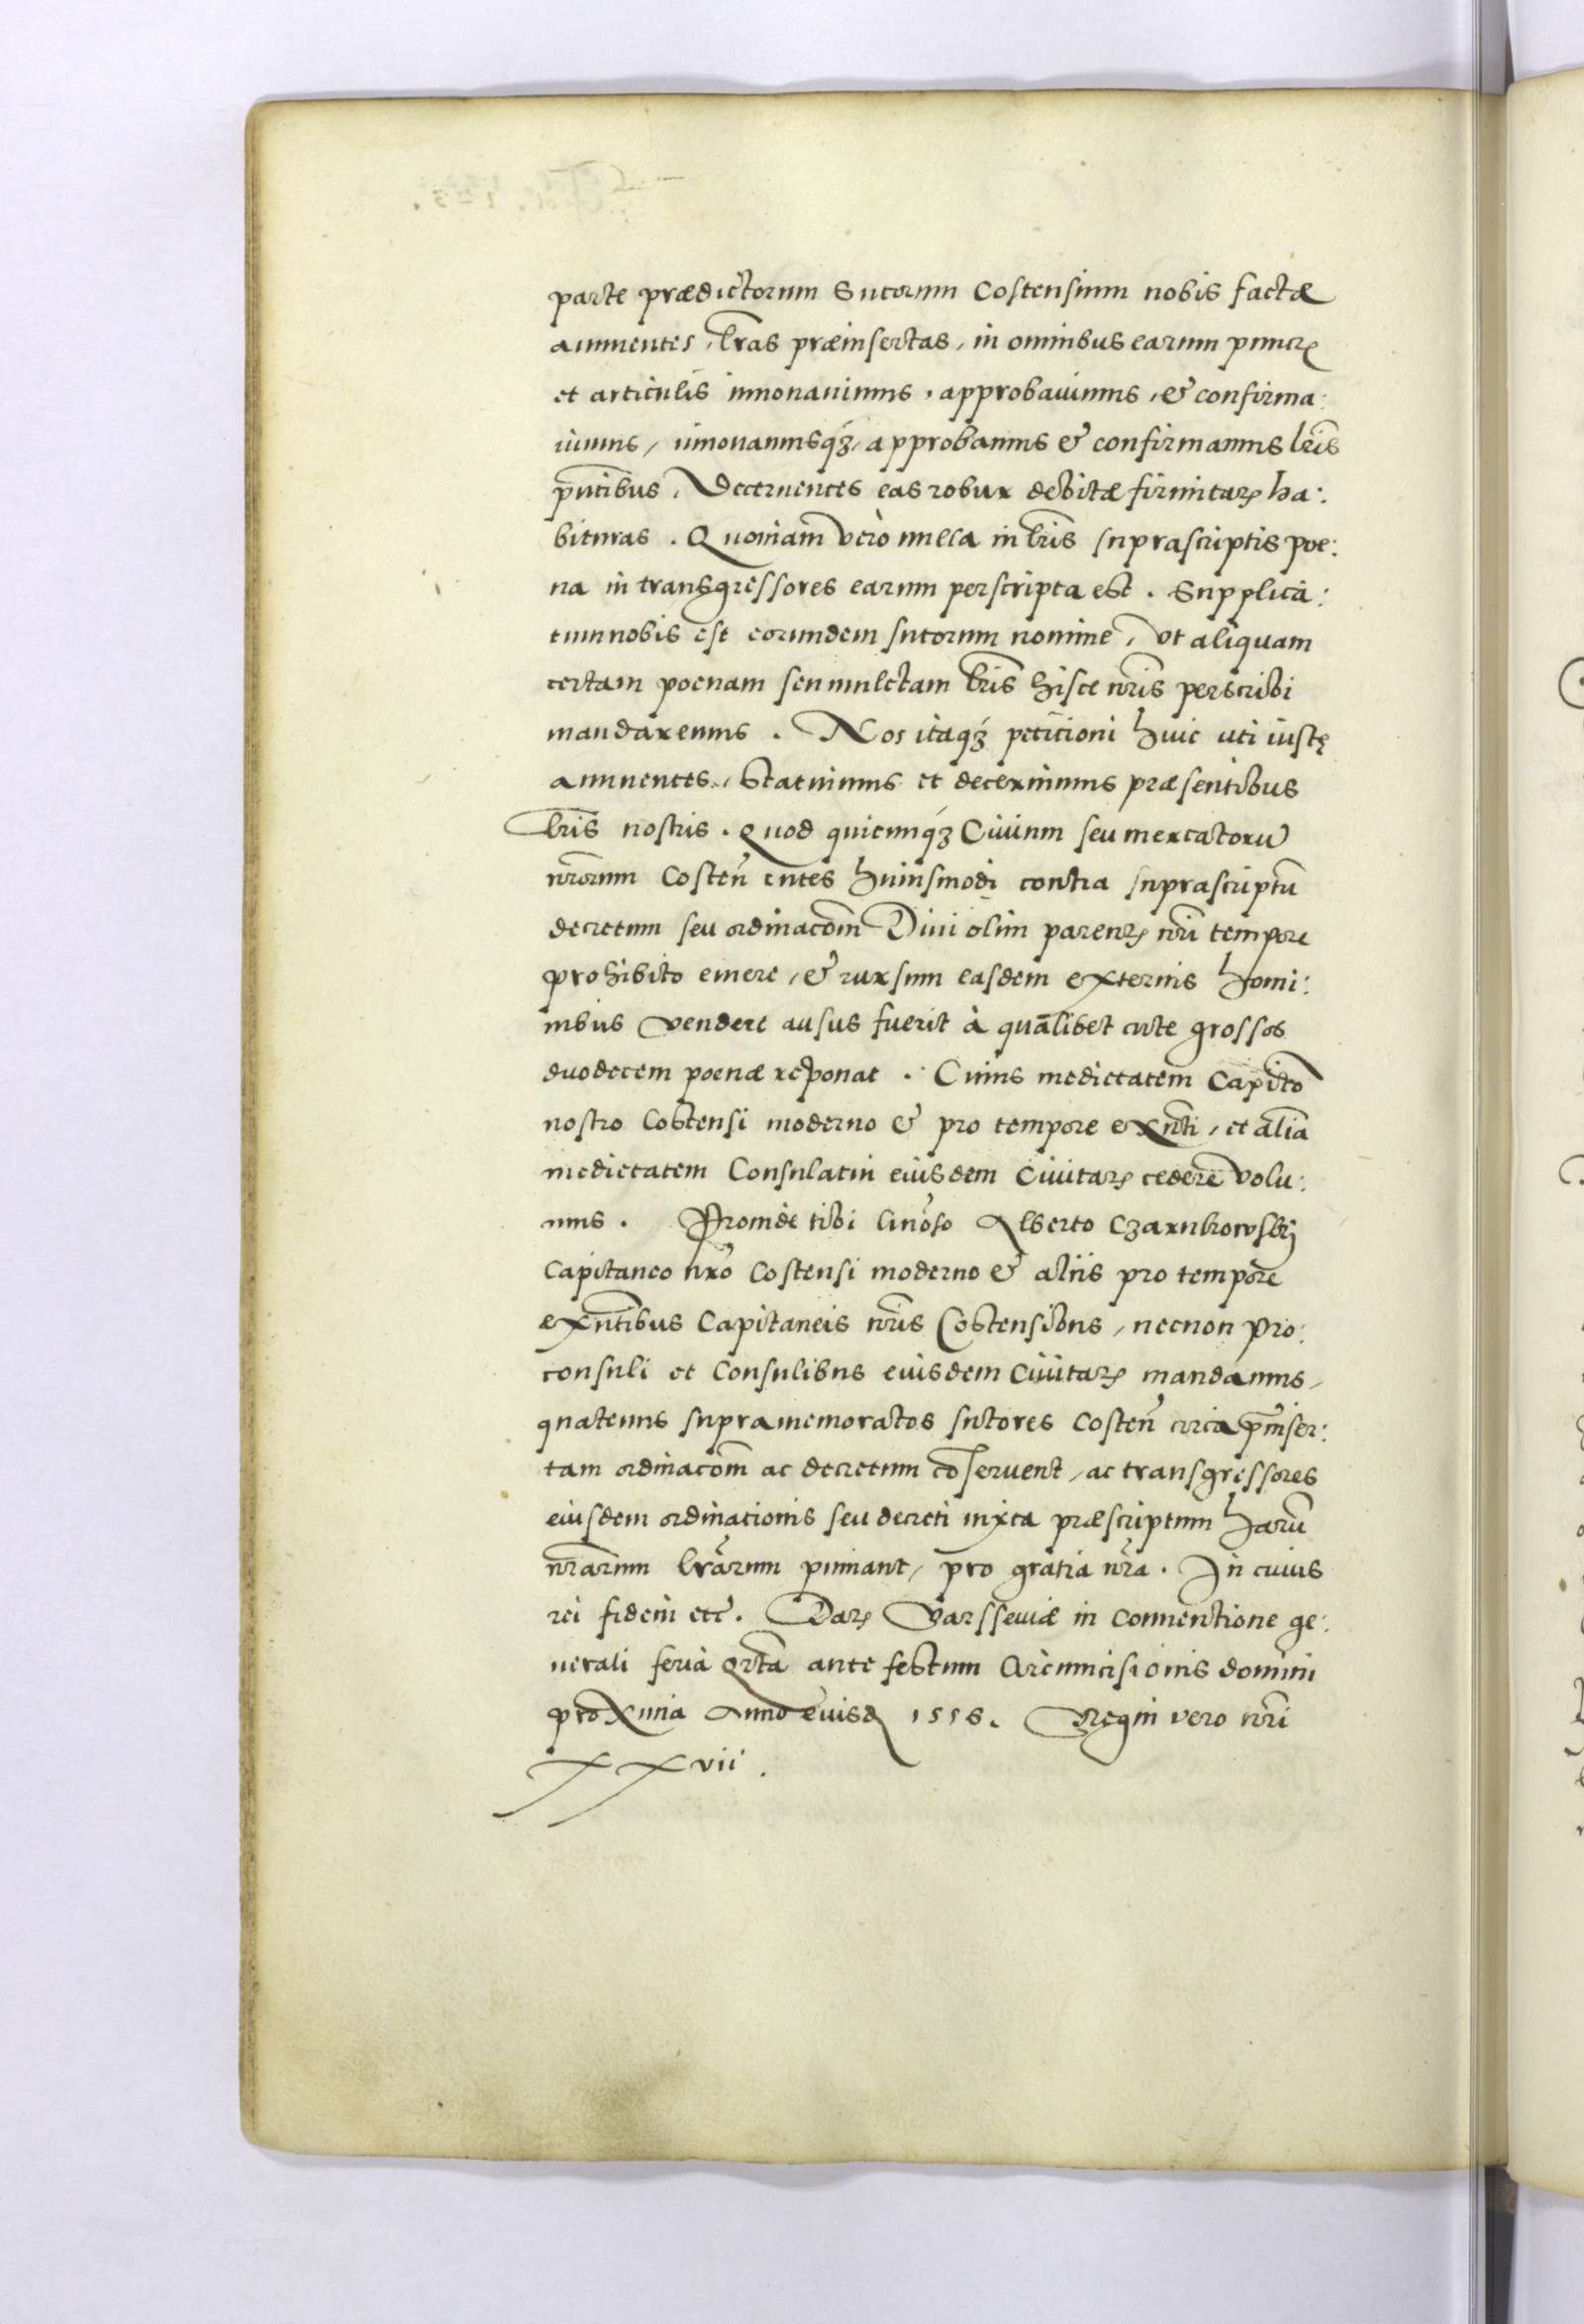 parte prædictorum Sutorum Costensium nobis factæ
annuentes, lr̃as præinsertas, in omnibus earum punctꝭ
et articulis innovavimus, approbavimus, & confirma:
vimus, innovamusqꝫ, approbamus & confirmamus lr̃is
pñtibus, Decernentes eas robur debitæ firmitatꝭ ha:
bituras. Quoniam verò nulla in lr̃is suprascriptis poe:
na in transgressores earum perscripta est. Supplica:
tum nobis est eorundem sutorum nomine, vt aliquam
certam poenam seu mulctam lr̃is hisce nr̃is perscribi
mandaremus. Nos itaqꝫ petitioni huic uti iustę
annuentes, statuimus et decernimus præsentibus
lr̃is nostris. Quod quicunqꝫ Civium seu mercatorũ
nr̃orum Costeñ cutes huiusmodi contra suprascriptũ
decretum seu ordinacõm Divi olim parentꝭ nr̃i tempore
prohibito emere, & rursum easdem externis homi:
nibus vendere ausus fuerit à quãlibet cute grossos
duodecem poenæ reponat. Cuius medietatem Capitõ
nostro Costensi moderno & pro tempore exñti, et aliã
medietatem Consulatui eiusdem Civitatꝭ cedere volu:
mus. Proinde tibi Gnõso Alberto Czarnkowskij
Capitaneo nr̃o Costensi moderno & aliis pro tempore
exñtibus Capitaneis nr̃is Costensibus, necnon pro:
consuli et Consulibus eiusdem Civitatꝭ mandamus,
quatenus supramemoratos sutores Costeñ circa p̃inser:
tam ordinacõm ac decretum cõservent, ac transgressores
eiusdem ordinationis seu decreti iuxta præscriptum harũ
nr̃arum lr̃arum puniant, pro gratia nr̃a. In cuius
rei fidem etc̃. Datꝭ Varsseviæ in Conventione ge:
nerali feria qrtã ante festum Circumcisionis domini
proxima Anno eiusd 1556. Regni vero nr̃i
xxvii.